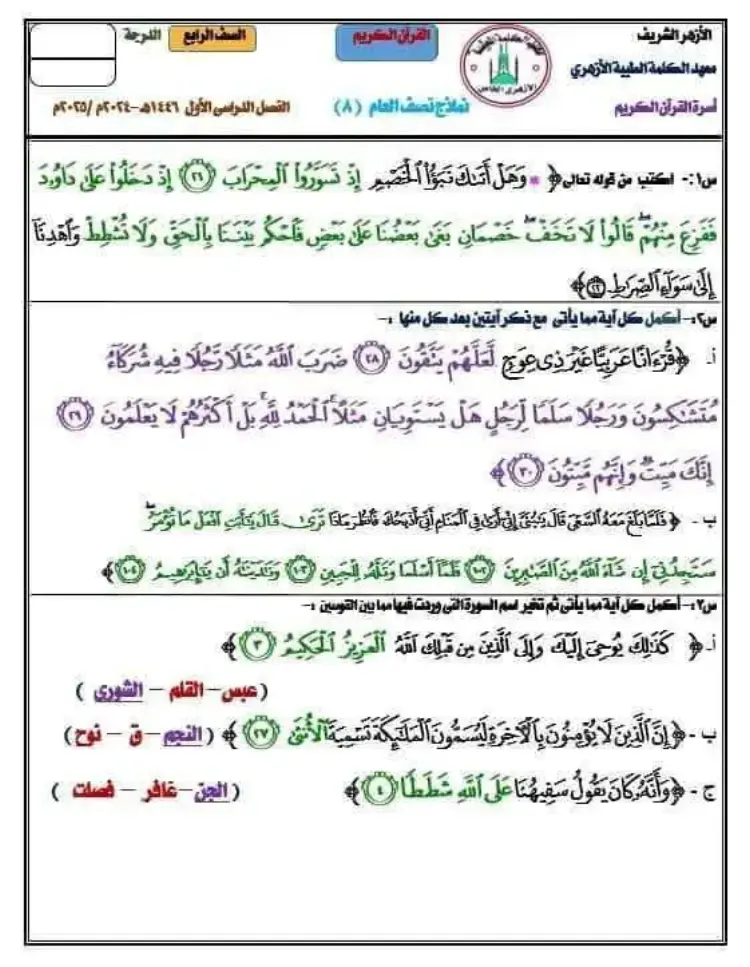 الأزهر الشريف القرآن الكريم الصف الرابع الدرجة
معهد الكلمة الطيبة الأزهري
أسرة القرآن الكريم نماذج نصف العام (٨) الفصل الدراسي الأول ١٤٤٦هـ-٢٠٢٤م /٢٠٢٥م
س١:- اكتب من قوله تعالى ﴿ * وَهَلْ أَتَىٰكَ نَبَؤُا۟ ٱلْخَصْمِ إِذْ تَسَوَّرُوا۟ ٱلْمِحْرَابَ ٢١ إِذْ دَخَلُوا۟ عَلَىٰ دَاوُۥدَ
فَفَزِعَ مِنْهُمْ ۖ قَالُوا۟ لَا تَخَفْ ۖ خَصْمَانِ بَغَىٰ بَعْضُنَا عَلَىٰ بَعْضٍ فَٱحْكُم بَيْنَنَا بِٱلْحَقِّ وَلَا تُشْطِطْ وَٱهْدِنَآ
إِلَىٰ سَوَآءِ ٱلصِّرَٰطِ ٢٢﴾
س٢:- أكمل كل آية مما يأتى مع ذكر آيتين بعد كل منها :-
أ- ﴿قُرْءَانًا عَرَبِيًّا غَيْرَ ذِى عِوَجٍ لَّعَلَّهُمْ يَتَّقُونَ ٢٨ ضَرَبَ ٱللَّهُ مَثَلًا رَّجُلًا فِيهِ شُرَكَآءُ
مُتَشَٰكِسُونَ وَرَجُلًا سَلَمًا لِّرَجُلٍ هَلْ يَسْتَوِيَانِ مَثَلًا ۚ ٱلْحَمْدُ لِلَّهِ ۚ بَلْ أَكْثَرُهُمْ لَا يَعْلَمُونَ ٢٩
إِنَّكَ مَيِّتٌ وَإِنَّهُم مَّيِّتُونَ ٣٠﴾
ب- ﴿فَلَمَّا بَلَغَ مَعَهُ ٱلسَّعْىَ قَالَ يَٰبُنَىَّ إِنِّىٓ أَرَىٰ فِى ٱلْمَنَامِ أَنِّىٓ أَذْبَحُكَ فَٱنظُرْ مَاذَا تَرَىٰ ۚ قَالَ يَٰٓأَبَتِ ٱفْعَلْ مَا تُؤْمَرُ ۖ
سَتَجِدُنِىٓ إِن شَآءَ ٱللَّهُ مِنَ ٱلصَّٰبِرِينَ ١٠٢ فَلَمَّآ أَسْلَمَا وَتَلَّهُۥ لِلْجَبِينِ ١٠٣ وَنَٰدَيْنَٰهُ أَن يَٰٓإِبْرَٰهِيمُ ١٠٤﴾
س٣:- أكمل كل آية مما يأتى ثم تخير اسم السورة التى وردت فيها مما بين القوسين :-
أ-﴿ كَذَٰلِكَ يُوحِىٓ إِلَيْكَ وَإِلَى ٱلَّذِينَ مِن قَبْلِكَ ٱللَّهُ ٱلْعَزِيزُ ٱلْحَكِيمُ ٣﴾
(عبس – القلم – الشورى )
ب-﴿إِنَّ ٱلَّذِينَ لَا يُؤْمِنُونَ بِٱلْءَاخِرَةِ لَيُسَمُّونَ ٱلْمَلَٰٓئِكَةَ تَسْمِيَةَ ٱلْأُنثَىٰ ٢٧﴾ ( النجم – ق – نوح)
ج-﴿وَأَنَّهُۥ كَانَ يَقُولُ سَفِيهُنَا عَلَى ٱللَّهِ شَطَطًا ٤﴾ (الجن – غافر – فصلت )